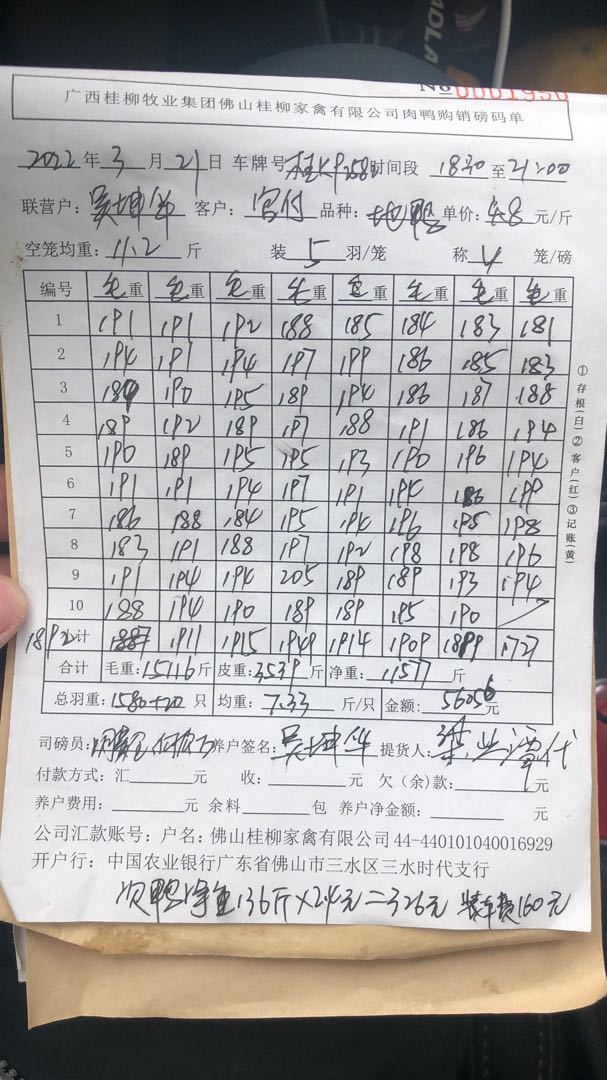 No 0001936
广西桂柳牧业集团佛山桂柳家禽有限公司肉鸭购销磅码单
2022年3月21日 车牌号 时间段 1830至21:00
联营户:吴坤华 客户:宫付 品种: 单价:4.8元/斤
空笼均重:11.2斤 装5羽/笼 称4笼/磅
编号 毛重 毛重 毛重 毛重 毛重 毛重 毛重 毛重
1 191 191 192 188 185 184 183 181
2 194 191 194 197 199 186 185 183
3 189 190 195 189 194 186 187 188
4 189 192 189 197 188 191 186 194
5 190 189 195 195 193 190 196 194
6 191 191 194 197 191 194 186 199
7 186 188 184 195 194 196 195 198
8 183 191 188 197 192 198 198 196
9 191 194 194 205 189 189 193 194
10 188 194 190 189 189 195 190
1892 计 1887 1911 1915 1949 1914 1909 1899 1727
合计 毛重:15116斤 皮重:3539斤 净重:11577斤
总羽重:1580+20只 均重:7.33斤/只 金额:56056元
司磅员: 养户签名:吴坤华 提货人:
付款方式:汇 元 收: 元 欠(余)款: 元
养户费用: 元 余料 包 养户净金额: 元
公司汇款账号:户名:佛山桂柳家禽有限公司44-440101040016929
开户行:中国农业银行广东省佛山市三水区三水时代支行
次鸭净重136斤×2.4元=326元 装车费160元
①存根(白)②客户(红)③记账(黄)